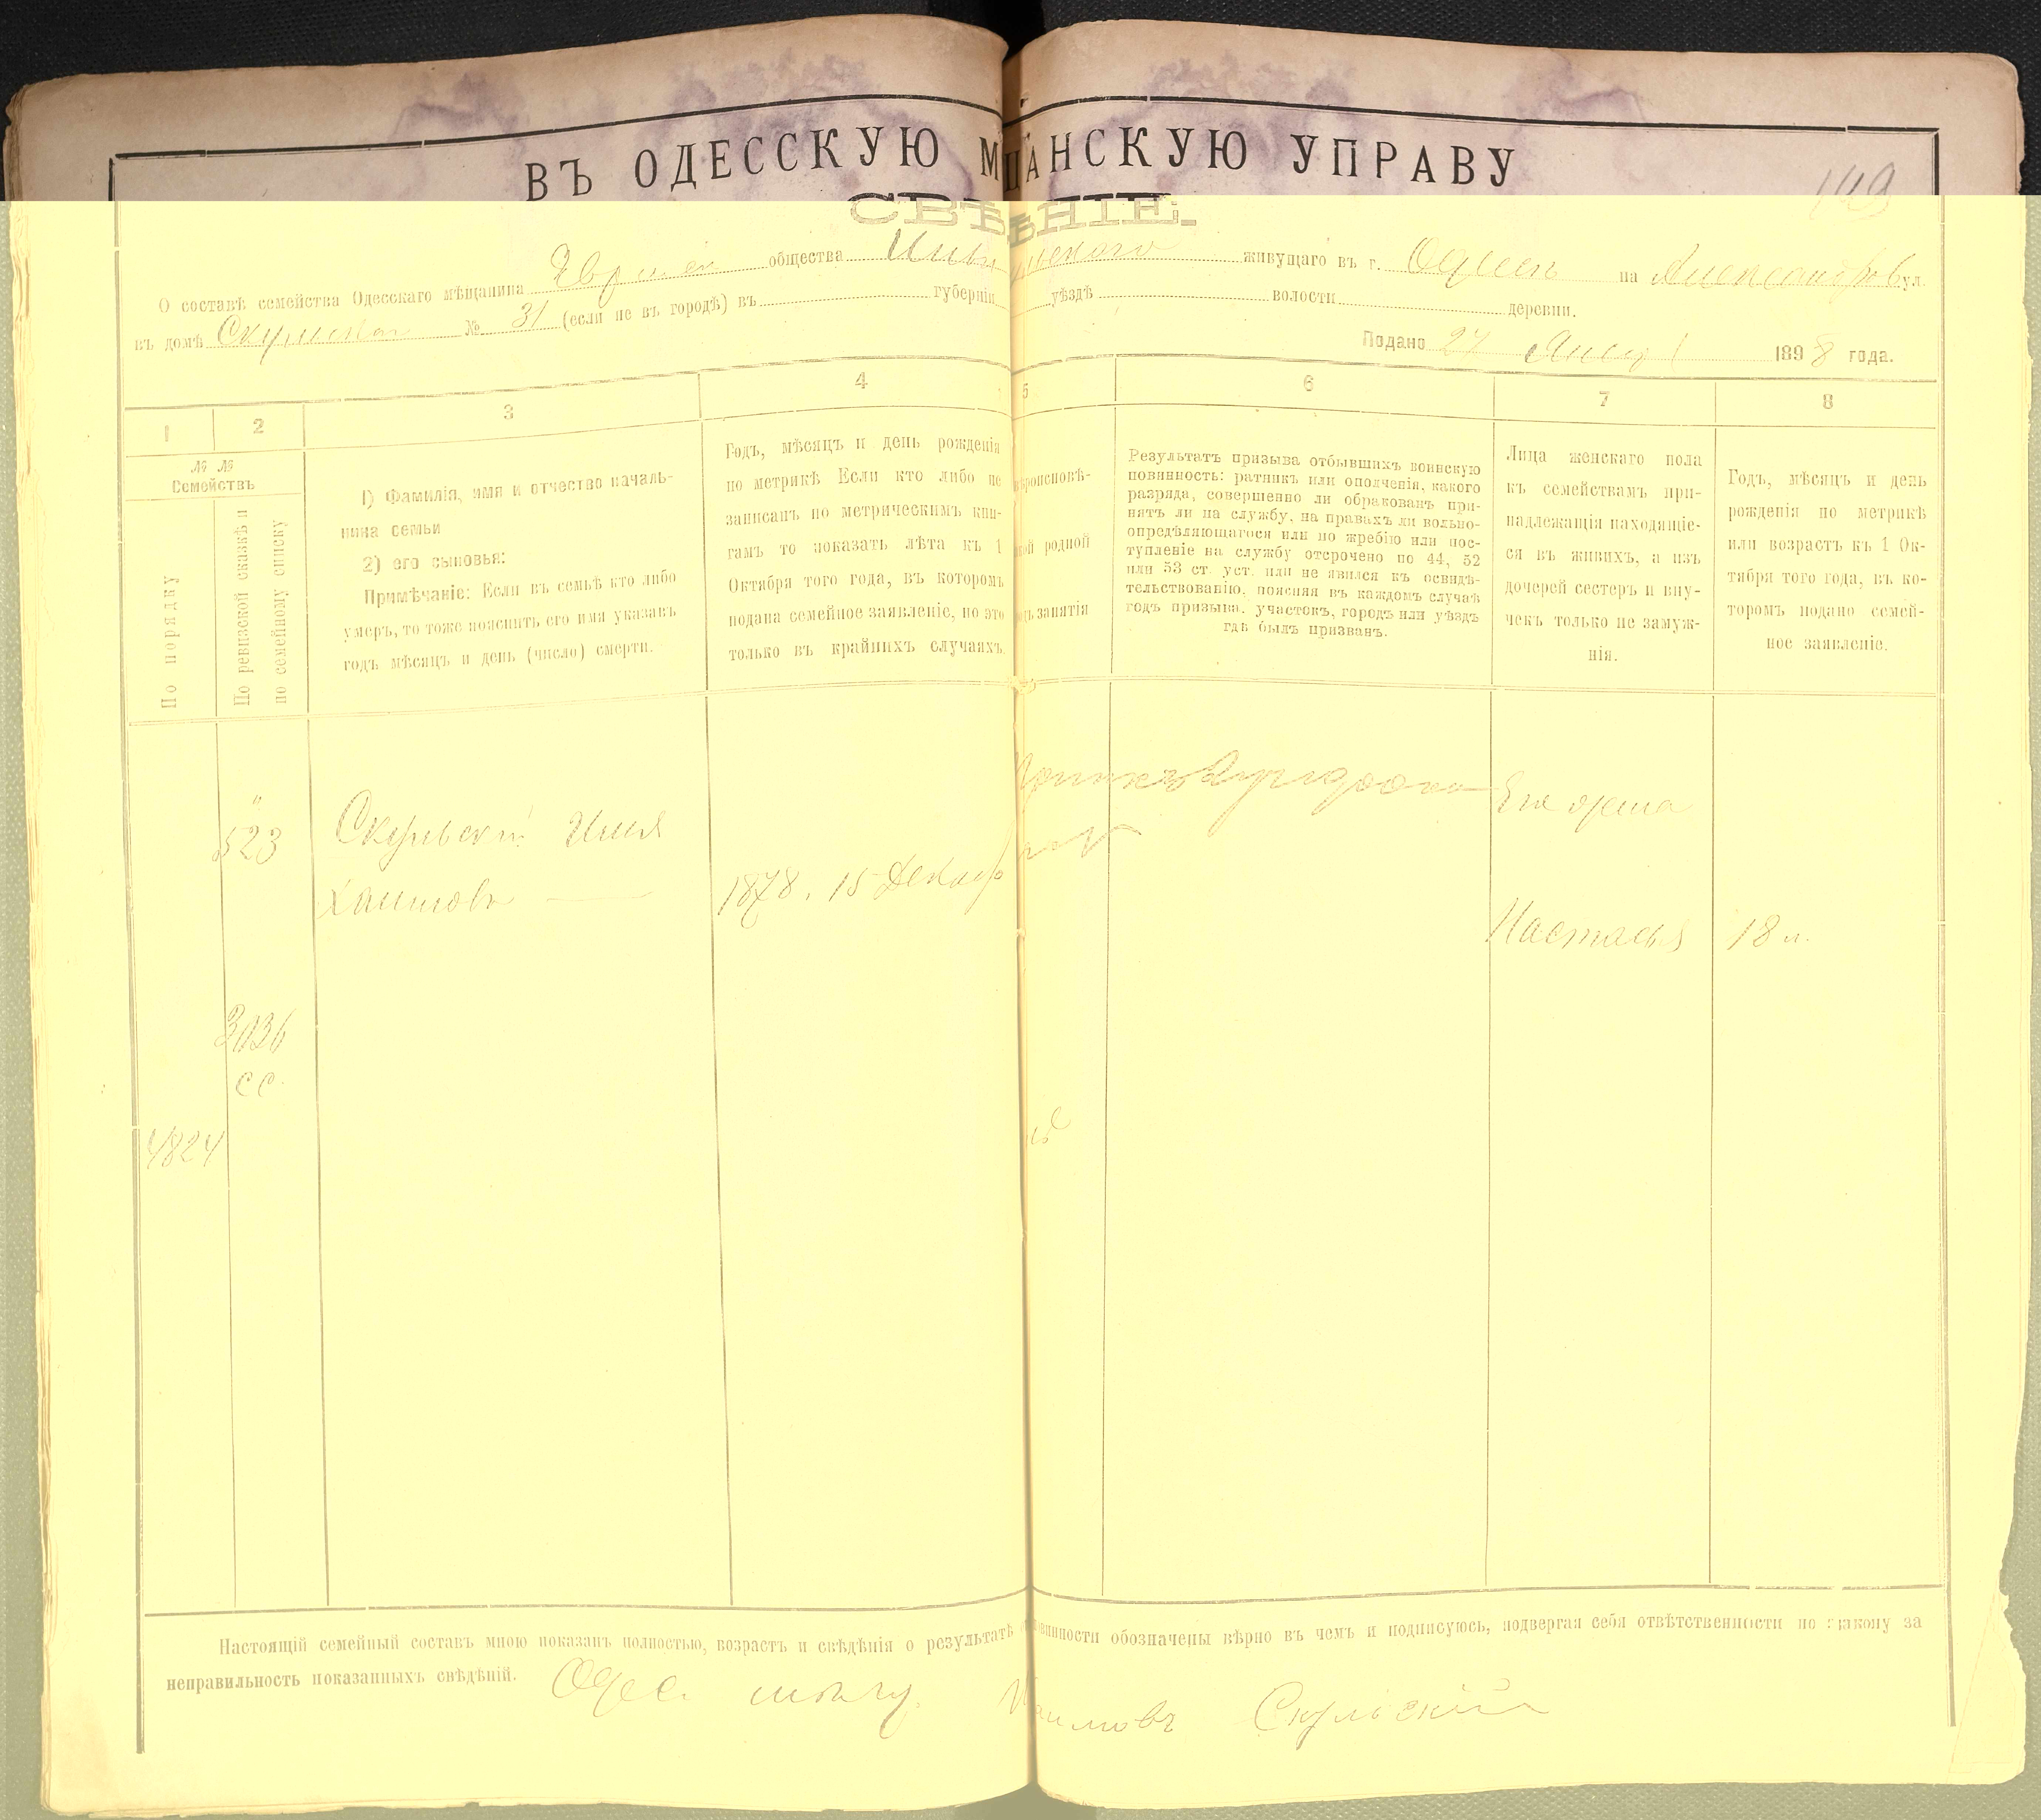 ВЪ ОДЕССКУЮ М ЩАНСКУЮ УПРАВУ
149
СВѢ ѢНІЕ.
О составѣ семейства Одесскаго мѣщанина общества живущаго въ г. Одессѣ на Александров ул.
въ домѣ № 31 (если не въ городѣ) въ губерніи уѣздѣ волости деревни.
Подано 27 1898 года.
1 2 3 4 5 6 7 8
№ №
Семействъ
По порядку
По ревизской сказкѣ и
по семейному списку
1) Фамилія, имя и отчество началь-
ника семьи
2) его сыновья:
Примѣчаніе: Если въ семьѣ кто либо
умеръ, то тоже пояснить его имя указавъ
годъ мѣсяцъ и день (число) смерти.
Годъ, мѣсяцъ и день рожденія
по метрикѣ Если кто либо не
записанъ по метрическимъ кни-
гамъ то показать лѣта къ 1
Октября того года, въ которомъ
подана семейное заявленіе, но это
только въ крайнихъ случаяхъ.
ѣроисповѣ-
кой родной
дъ занятія
Результатъ призыва отбывшихъ воинскую
повинность: ратникъ или ополченія, какого
разряда, совершенно ли обракованъ при-
нятъ ли на службу, на правахъ ли вольно-
опредѣляющагося или по жребію или пос-
тупленіе на службу отсрочено по 44, 52
или 53 ст. уст. или не явился къ освидѣ-
тельствованію, поясняя въ каждомъ случаѣ
годъ призыва, участокъ, городъ или уѣздъ
гдѣ былъ призванъ.
Лица женскаго пола
къ семействамъ при-
надлежащія находящіе-
ся въ живихъ, а изъ
дочерей сестеръ и вну-
чекъ только не замуж-
нія.
Годъ, мѣсяцъ и день
рожденія по метрикѣ
или возрастъ къ 1 Ок-
тября того года, въ ко-
торомъ подано семей-
ное заявленіе.
523
Скульскій Илья
Хаимовъ
1878. 15 Декабр
Его жена
Настасья 18 л.
3036
СС.
4824
Настоящій семейный составъ мною показанъ полностью, возрастъ и свѣдѣнія о результатѣ овинности обозначены вѣрно въ чемъ и подписуюсь, подвергая себя отвѣтственности по закону за
неправильность показанныхъ свѣдѣній.
Одес. Хаимовъ Скульскій